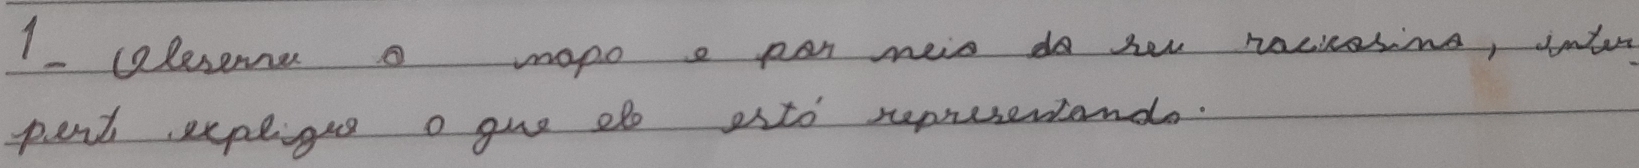 1- Observe o mapo e por meio do seu raciosino, inter-
perti expligue o que elo estó representando.